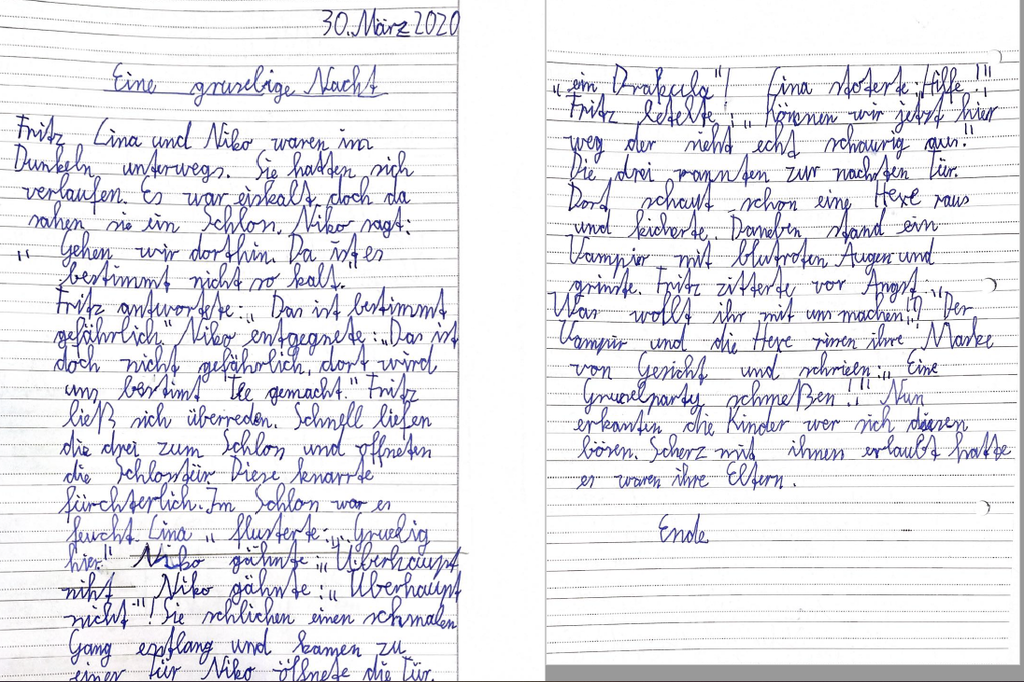 30. März 2020
Eine gruselige Nacht
Fritz Lina und Niko waren im
Dunkeln unterwegs. Sie hatten sich
verlaufen. Es war eiskalt, doch da
sahen sie ein Schloss. Niko sagt:
„Gehen wir dorthin. Da ist es
bestimmt nicht so kalt."
Fritz antwortete: „Das ist bestimmt
gefährlich" Niko entgegnete: „Das ist
doch nicht gefährlich, dort wird
uns bestimt Tee gemacht." Fritz
ließ sich überreden. Schnell liefen
die drei zum Schloss und öffneten
die Schlosstür. Diese knarrte
fürchterlich. Im Schloss war es
feucht. Lina „flusterte: „Gruselig
hier." Niko gähnte: „Überhaupt
niht Niko gähnte: „Überhaupt
nicht"! Sie schlichen einen schmalen
Gang entlang und kamen zu
einer Tür Niko öffnete die Tür.
„ein Drakula"! Lina stoterte: Hilfe!!"
Fritz letelte: „Können wir jetzt hier
weg der sieht echt schaurig aus!"
Die drei rannten zur nachsten Tür.
Dort schaut schon eine Hexe raus
und kicherte. Daneben stand ein
Vampier mit blutroten Augen und
grinste. Fritz zitterte vor Angst:
Was wollt ihr mit uns machen!?" „Der
Vampir und die Hexe rissen ihre Maske
von Gesicht und schrieen: „Eine
Gruselparty schmeßen!!" Nun
erkanten die Kinder wer sich diesen
bösen. Scherz mit ihnen erlaubt hatte
es waren ihre Eltern.
Ende